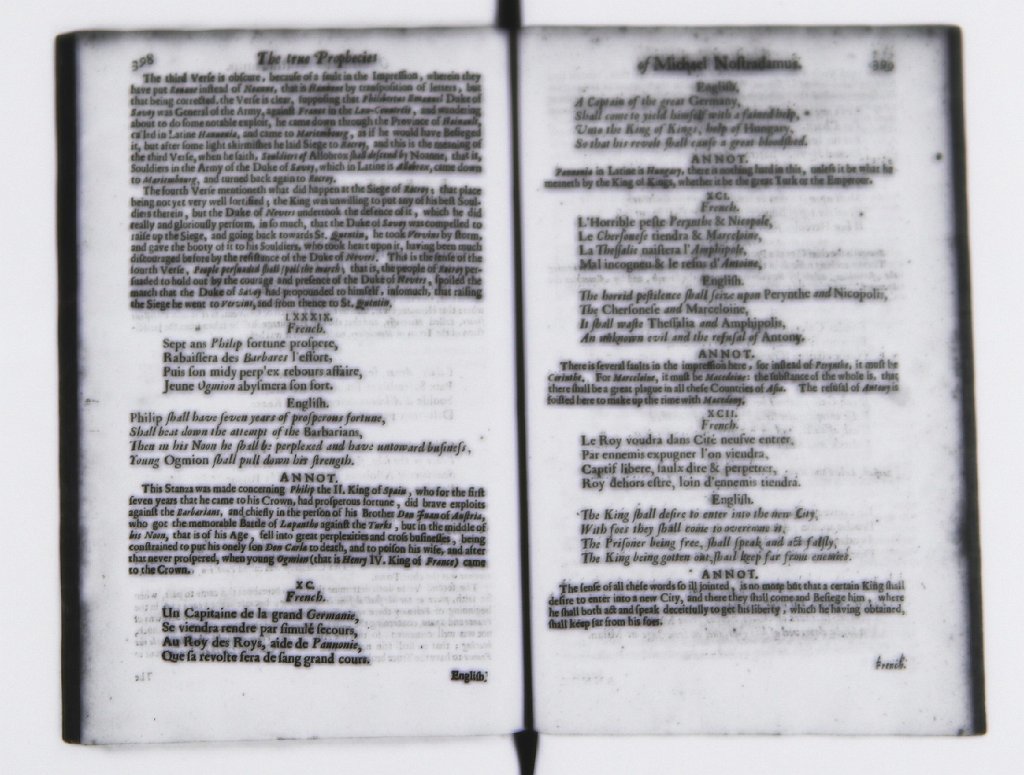 398 The true Prophecies
The third Verse is obscure, because of a fault in the Impression, wherein they
have put instead of that is by transposition of letters, but
that being corrected, the Verse is clear, supposing that Philibertus Emanuel Duke of
Savoy was General of the Army, against France in the Low-Countries, and wondering
about to do some notable exploit, he came down through the Province of Hainault,
called in Latine Hannonia, and came to Mariembourg, as if he would have Besieged
it, but after some light skirmishes he laid Siege to Rocroy, and this is the meaning of
the third Verse, when he saith, Souldiers of Allobrox shall descend by Noanne, that is,
Souldiers in the Army of the Duke of Savoy, which in Latine is Allobrox, came down
to Mariembourg, and turned back again to Rocroy.
The fourth Verse mentioneth what did happen at the Siege of Rocroy; that place
being not yet very well fortified; the King was unwilling to put any of his best Soul-
diers therein, but the Duke of Nevers undertook the defence of it, which he did
really and gloriously perform, in so much, that the Duke of Savoy was compelled to
raise up the Siege, and going back towards St. Quintin, he took Vervins by storm,
and gave the booty of it to his Souldiers, who took heart upon it, having been much
discouraged before by the resistance of the Duke of Nevers. This is the sense of the
fourth Verse, People persuaded shall spoil the march; that is, the people of Rocroy per-
suaded to hold out by the courage and presence of the Duke of Nevers, spoiled the
march that the Duke of Savoy had propounded to himself, insomuch, that raising
the Siege he went to Vervins, and from thence to St. Quintin.
LXXXIX.
French.
Sept ans Philip fortune prospere,
Rabaissera des Barbares l'effort,
Puis son midy perplex rebours affaire,
Jeune Ogmion abysmera son fort.
English.
Philip shall have seven years of prosperous fortune,
Shall beat down the attempt of the Barbarians,
Then in his Noon he shall be perplexed and have untoward business,
Young Ogmion shall pull down his strength.
ANNOT.
This Stanza was made concerning Philip the II. King of Spain, who for the first
seven years that he came to his Crown, had prosperous fortune, did brave exploits
against the Barbarians, and chiefly in the person of his Brother Don Juan of Austria,
who got the memorable Battle of Lapantho against the Turks, but in the middle of
his Noon, that is of his Age, fell into great perplexities and cross businesses, being
constrained to put his onely son Don Carlo to death, and to poison his wife, and after
that never prospered, when young Ogmion (that is Henry IV. King of France) came
to the Crown.
XC.
French.
Un Capitaine de la grand Germanie,
Se viendra rendre par simulé secours,
Au Roy des Roys, aide de Pannonie,
Que sa revolte sera de sang grand cours.
English.
of Michael Nostradamus. 399
English.
A Captain of the great Germany,
Shall come to yield himself with a fained help,
Unto the King of Kings, help of Hungary,
So that his revolt shall cause a great bloodshed.
ANNOT.
Pannonia in Latine is Hungary, there is nothing hard in this, unless it be what he
meaneth by the King of Kings, whether it be the great Turk or the Emperour.
XCI.
French.
L'Horrible peste Perynthe & Nicopole,
Le Chersonese tiendra & Marceloine,
La Thessalie naistera l'Amphipole,
Mal incogneu & le refus d'Antoine,
English.
The horrid pestilence shall seise upon Perynthe and Nicopolis,
The Chersonese and Marceloine,
It shall waste Thessalia and Amphipolis,
An unknown evil and the refusal of Antony.
ANNOT.
There is several faults in the impression here, for instead of Perynthe, it must be
Corinthe. For Marceloine, it must be Macedoine: the substance of the whole is, that
there shall be a great plague in all these Countries of Asia. The refusal of Antony is
foisted here to make up the rime with Macedony.
XCII.
French.
Le Roy voudra dans Cité neufve entrer,
Par ennemis expugner l'on viendra,
Captif libere, faulx dire & perpetrer,
Roy dehors estre, loin d'ennemis tiendra.
English.
The King shall desire to enter into the new City,
With foes they shall come to overcome it,
The Prisoner being free, shall speak and act falsly,
The King being gotten out, shall keep far from enemies.
ANNOT.
The sense of all these words so ill jointed, is no more but that a certain King shall
desire to enter into a new City, and there they shall come and Besiege him, where
he shall both act and speak deceitfully to get his liberty, which he having obtained,
shall keep far from his foes.
French.